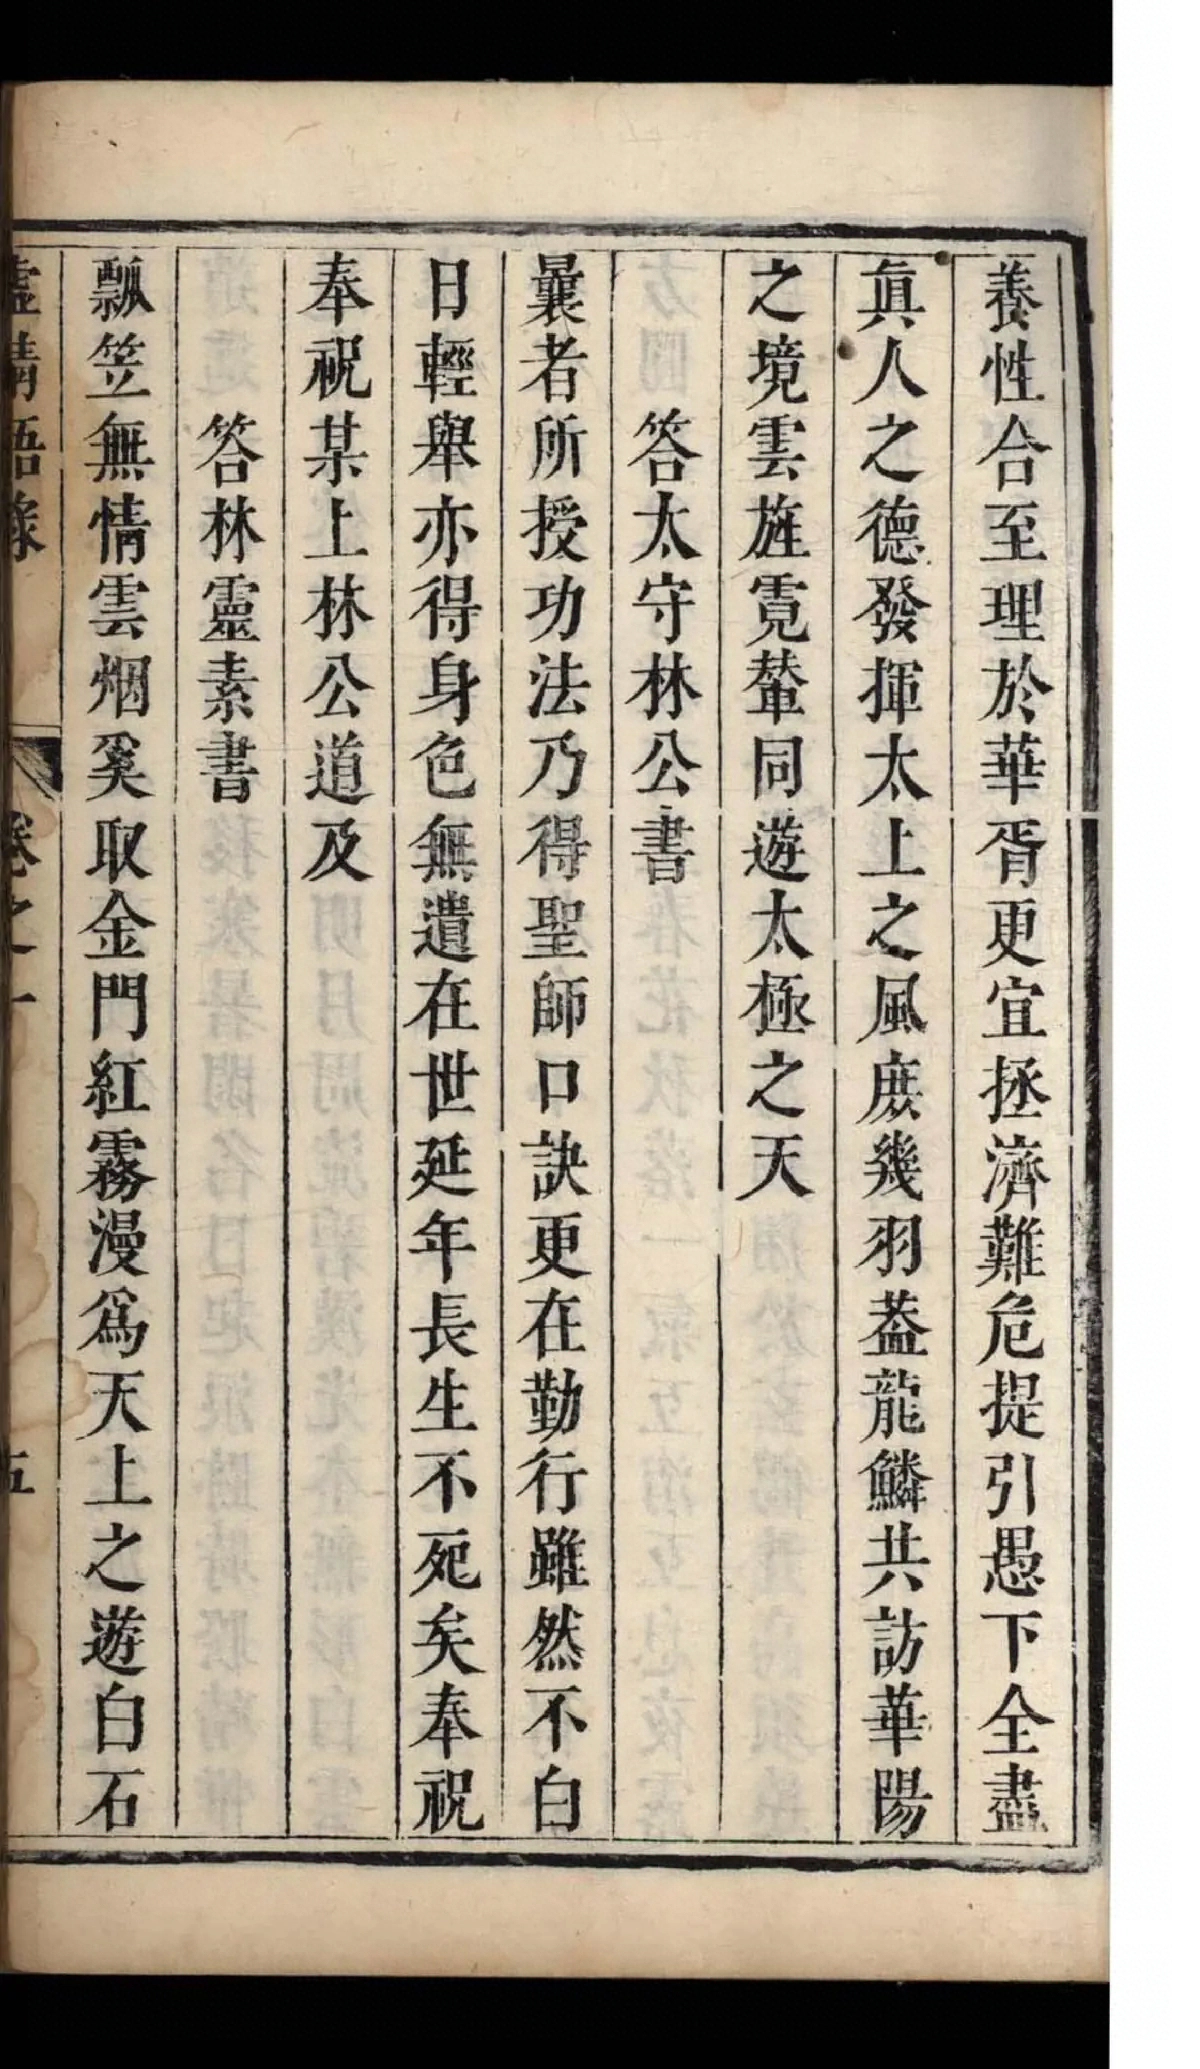 養性合至理於華胥更宜拯濟難危提引愚下全盡
眞人之德發揮太上之風庻幾羽葢龍鱗共訪華陽
之境雲旌霓輦同遊太極之天
答太守林公書
曩者所授功法乃得聖師口訣更在勤行雖然不白
日輕舉亦得身色無遺在世延年長生不死矣奉祝
奉祝某上林公道及
答林靈素書
瓢笠無情雲烟奚取金門紅霧漫爲天上之遊白石
虛靖語錄 卷之一 五